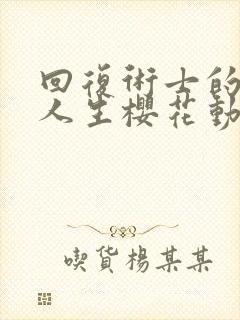 回復術士的
人生櫻花動
喫貨楊某某